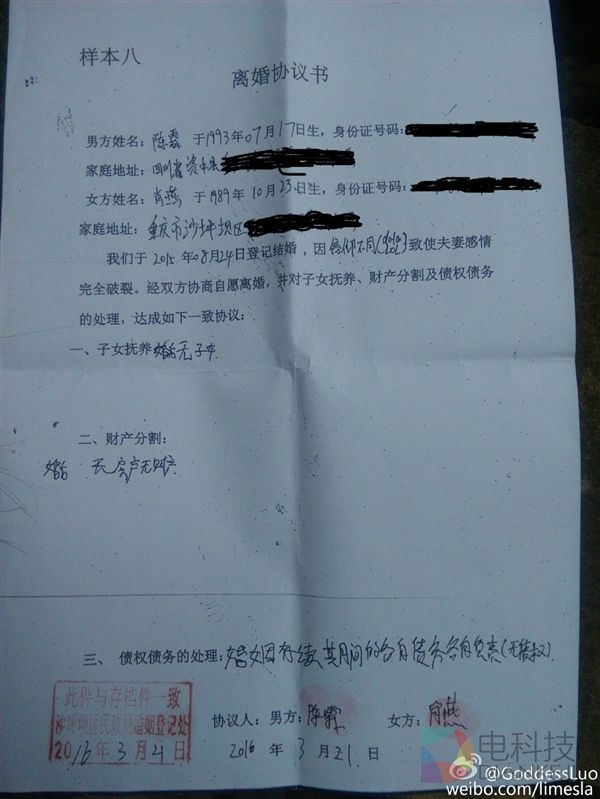 样本八
离婚协议书
男方姓名：陈霖 于1993年07月17日生，身份证号码：
家庭地址：四川省资中县
女方姓名：肖燕 于1989年10月23日生，身份证号码：
家庭地址：重庆市沙坪坝区
我们于2015年08月24日登记结婚，因信仰不同( )致使夫妻感情
完全破裂。经双方协商自愿离婚，并对子女抚养、财产分割及债权债务
的处理，达成如下一致协议：
一、子女抚养 婚后无子女
二、财产分割：
婚后 无房产无财产
三、债权债务的处理：婚姻存续其间的各自债务各自负责(无债权)
此件与存档件一致
沙坪坝区民政局婚姻登记处
2016年3月21日
协议人：男方：陈霖 女方：肖燕
2016年3月21日
电科技
@GoddessLuo
weibo.com/limesla